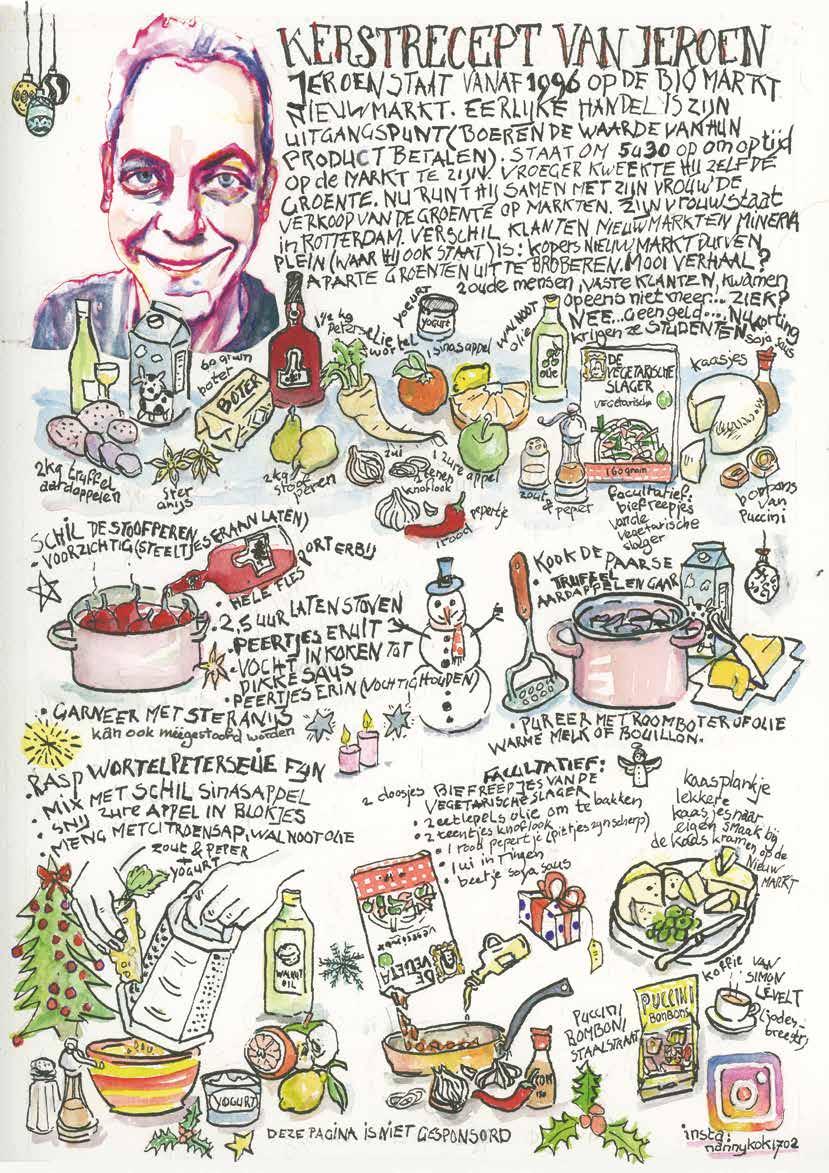 KERSTRECEPT VAN JEROEN
JEROEN STAAT VANAF 1996 OP DE BIO MARKT
NIEUWMARKT. EERLIJKE HANDEL IS ZIJN
UITGANGSPUNT (BOEREN DE WAARDE VAN HUN
PRODUCT BETALEN). STAAT OM 5U30 OP OM OP TIJD
OP de MARKT TE ZIJN. VROEGER KWEEKTE HIJ ZELF DE
GROENTE. NU RUNT HIJ SAMEN MET ZIJN VROUW DE
VERKOOP VAN DE GROENTE OP MARKTEN. ZIJN VROUW STAAT
in ROTTERDAM. VERSCHIL KLANTEN NIEUWMARKT EN MINERVA
PLEIN (WAAR HIJ OOK STAAT) IS: KOPERS NIEUWMARKT DURVEN
APARTE GROENTEN UIT TE BROBEREN. MOOI VERHAAL?
2 oude mensen, VASTE KLANTEN, KWAMEN
opeens niet meer... ZIEK?
NEE... Geen geld.... NU
krijgen ze STUDENTEN korting
1/2 kg
Peterselie
wortel
yogurt
YOGURT
1 sinasappel
WALNOOT
olie
OLIE
soja saus
60 gram
boter
BOTER
DE
VEGETARISCHE
SLAGER
VEGETARISCHE
160 gram
kaasjes
2kg truffel
aardappelen
Ster
anijs
2kg
stoof
peren
1 ui
2 tenen
knoflook
1 zure appel
1 rood
pepertje
zout
& peper
facultatief:
biefreepjes
van de
vegetarische
slager
bonbons
van
Puccini
SCHIL DE STOOFPEREN
• VOORZICHTIG (STEELTJES ERAAN LATEN)
PORT ERBIJ
• HELE FLES
• 2,5 UUR LATEN STOVEN
• PEERTJES ERUIT
• VOCHT IN KOKEN TOT
DIKKE SAUS
• PEERTJES ERIN (VOCHTIG HOUDEN)
• GARNEER MET STERANIJS
kan ook meegestoofd worden
KOOK DE PAARSE
• TRUFFEL
AARDAPPELEN GAAR
• PUREER MET ROOMBOTER OF OLIE
WARME MELK OF BOUILLON.
• RASP WORTELPETERSELIE FIJN
• MIX MET SCHIL SINASAPPEL
• SNIJ ZURE APPEL IN BLOKJES
• MENG MET CITROENSAP, WALNOOTOLIE
zout & PEPER
+ YOGURT
FACULTATIEF:
2 doosjes BIEFREEPJES VAN DE
VEGETARISCHE SLAGER
• 2 eetlepels olie om te bakken
• 2 teentjes knoflook
• 1 rood pepertje (pietjes zijn scherp)
• 1 ui in ringen
• beetje soya saus
kaasplankje
lekkere
kaasjes naar
eigen smaak bij
de kaas kramen op de
NIEUW
MARKT
WALNUT
OIL
YOGURT
DE
VEGETA
PUCCINI
BOMBONI
STAALSTRAAT
PUCCINI
BONBONS
KOFFIE VAN
SIMON
LEVELT
(joden-
breestr)
DEZE PAGINA IS NIET GESPONSORD
insta:
nannykok1702